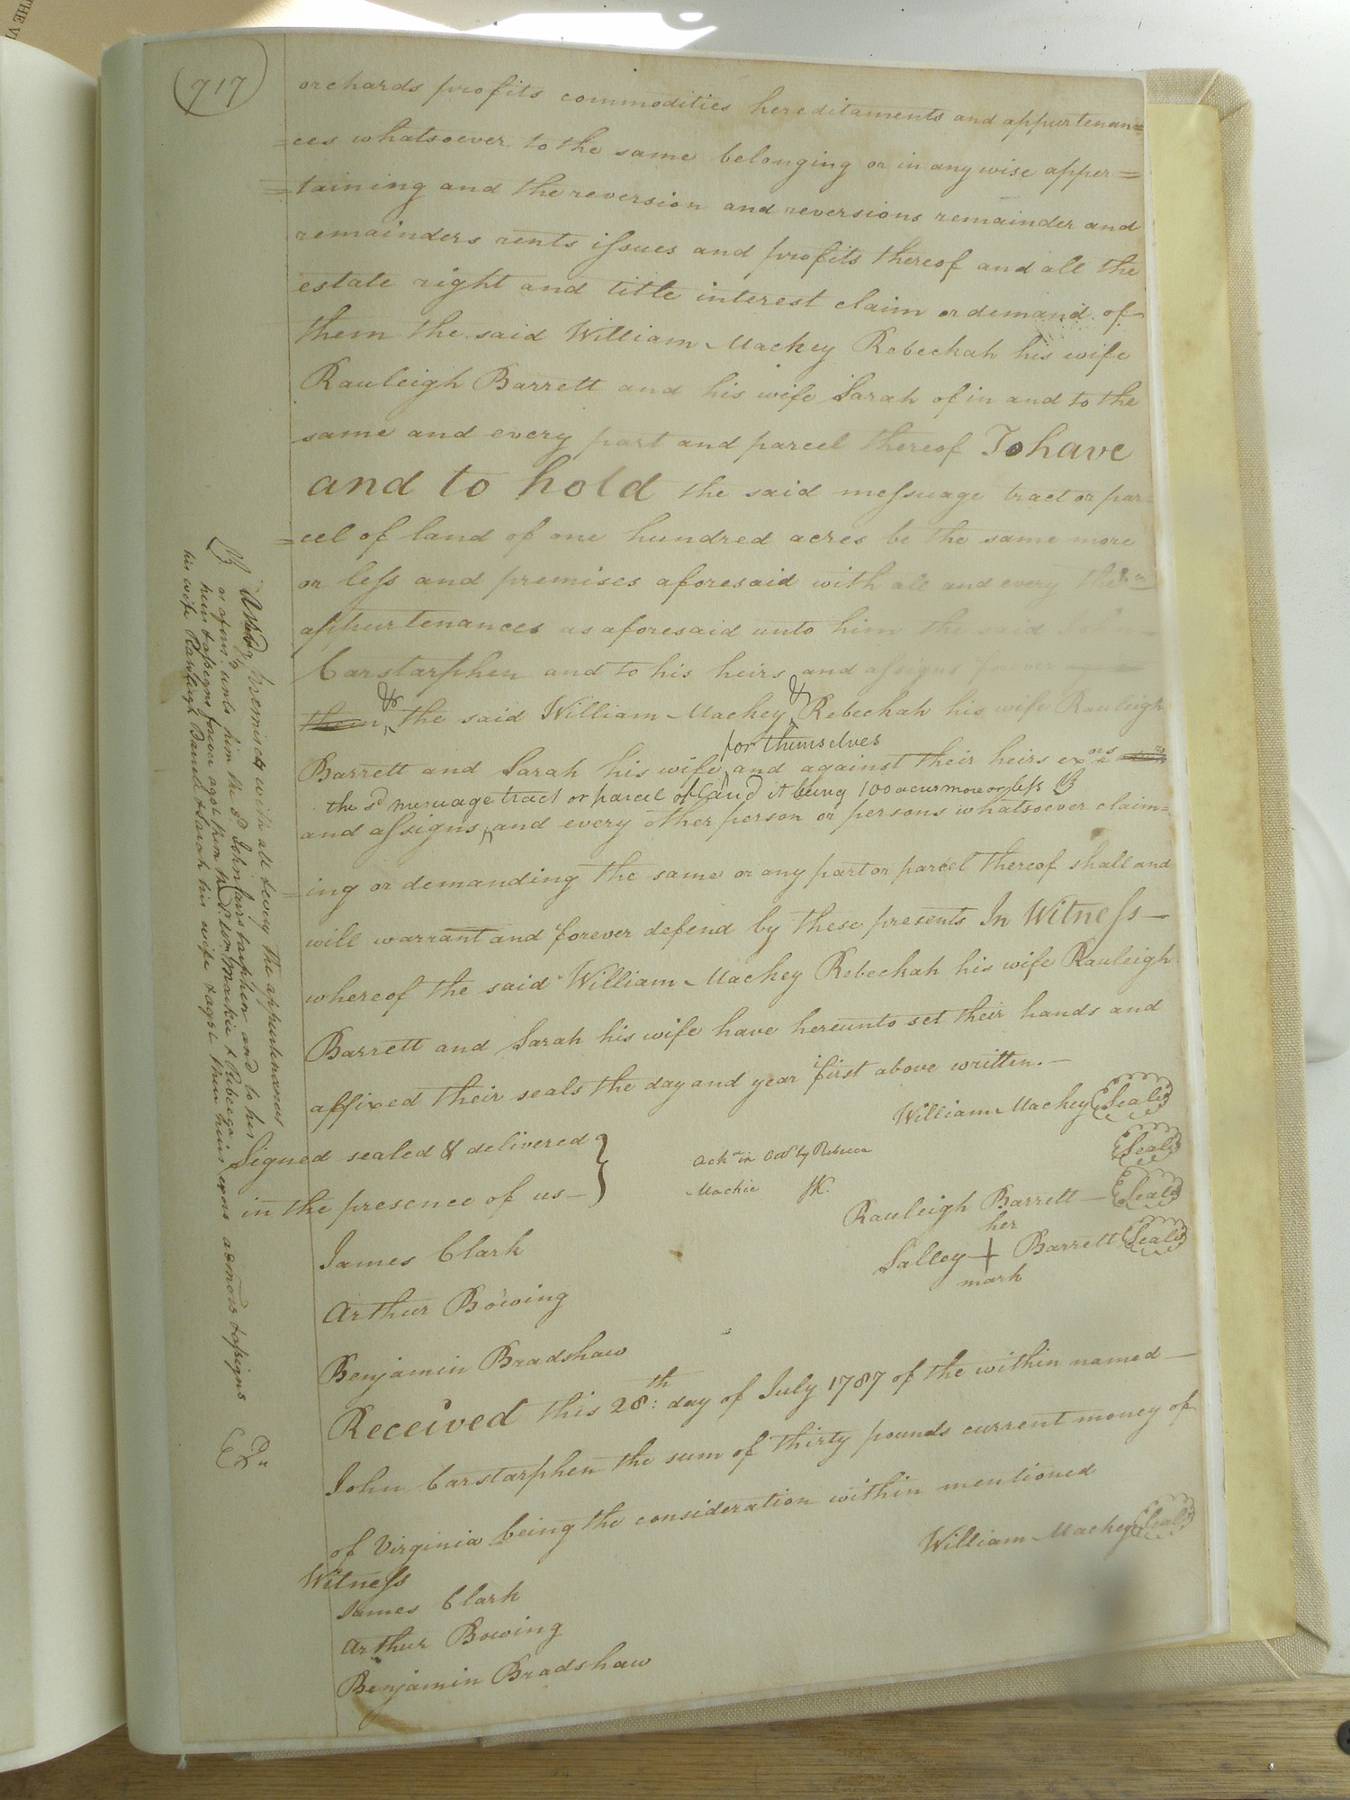 717
orchards profits commodities hereditaments and appurtenan=
=ces whatsoever to the same belonging or in any wise apper=
=taining and the reversion and reversions remainder and
remainders rents issues and profits thereof and all the
estate right and title interest claim or demand of
them the said William Mackey Rebeckah his wife
Rauleigh Barrett and his wife Sarah of in and to the
same and every part and parcel thereof To have
and to hold the said messuage tract or par=
=cel of land of one hundred acres be the same more
or less and premises aforesaid with all and every the
appurtenances as aforesaid unto him the said
Carstarphen and to his heirs and assigns forever
& &
then, the said William Mackey, Rebeckah his wife Rauleigh
for themselves
Barrett and Sarah his wife, and against their heirs exors
the sd messuage tract or parcel of land it being 100 acres more or less B
and assigns, and every other person or persons whatsoever claim=
=ing or demanding the same or any part or parcel thereof shall and
will warrant and forever defend by these presents In Witness
whereof the said William Mackey Rebeckah his wife Rauleigh
Barrett and Sarah his wife have hereunto set their hands and
affixed their seals the day and year first above written.
William Mackey Seal
Signed sealed & delivered
in the presence of us
Ackn in by Rebecca Seal
Mackie
Rauleigh Barrett Seal
her
Salley + Barrett Seal
mark
James Clark
Arthur Bowing
Benjamin Bradshaw
Received this 28th: day of July 1787 of the within named
John Carstarphen the sum of thirty pounds current money of
of Virginia being the consideration within mentioned
William Mackey Seal
Witness
James Clark
Arthur Bowing
Benjamin Bradshaw
B and premises with all & every the appurtenances
as aforesd unto him the sd John Carstarphen and to his
heirs & assigns forever agst them the sd Mackie & Rebecca
his wife Rawleigh Barrett & Sarah his wife & agst their heirs exors admors & assigns